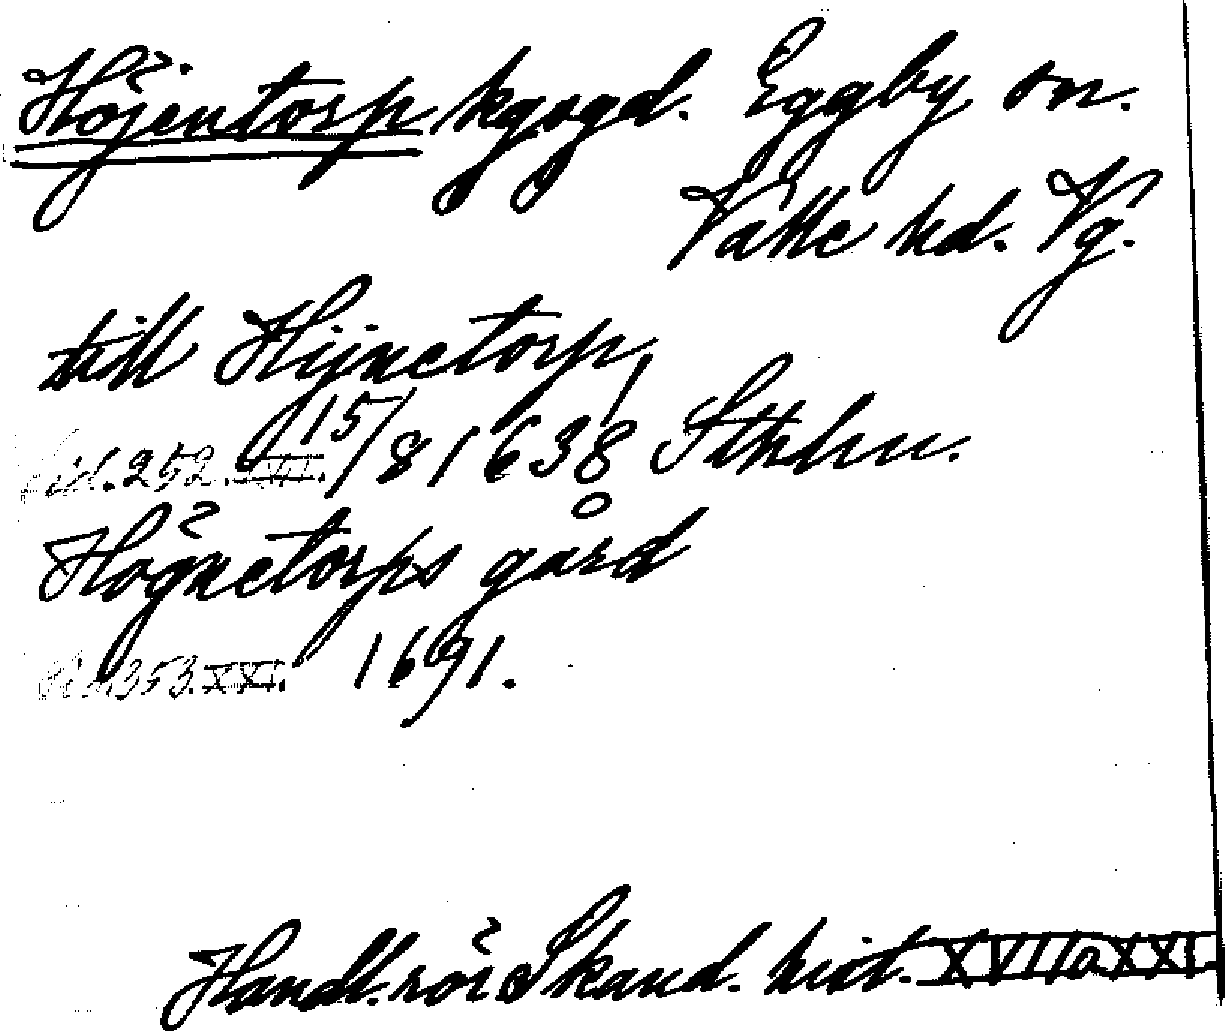 Höjentorp kgsgd. Eggby sn.
Valle hd. Vg.
till Hijnetorp
sid. 252. XVII. 15/8 1638 Sthlm.
Högnetorps gård
sid. 353. XXI. 1691.
Handl. rör. Skand. hist. XVII o XXI.